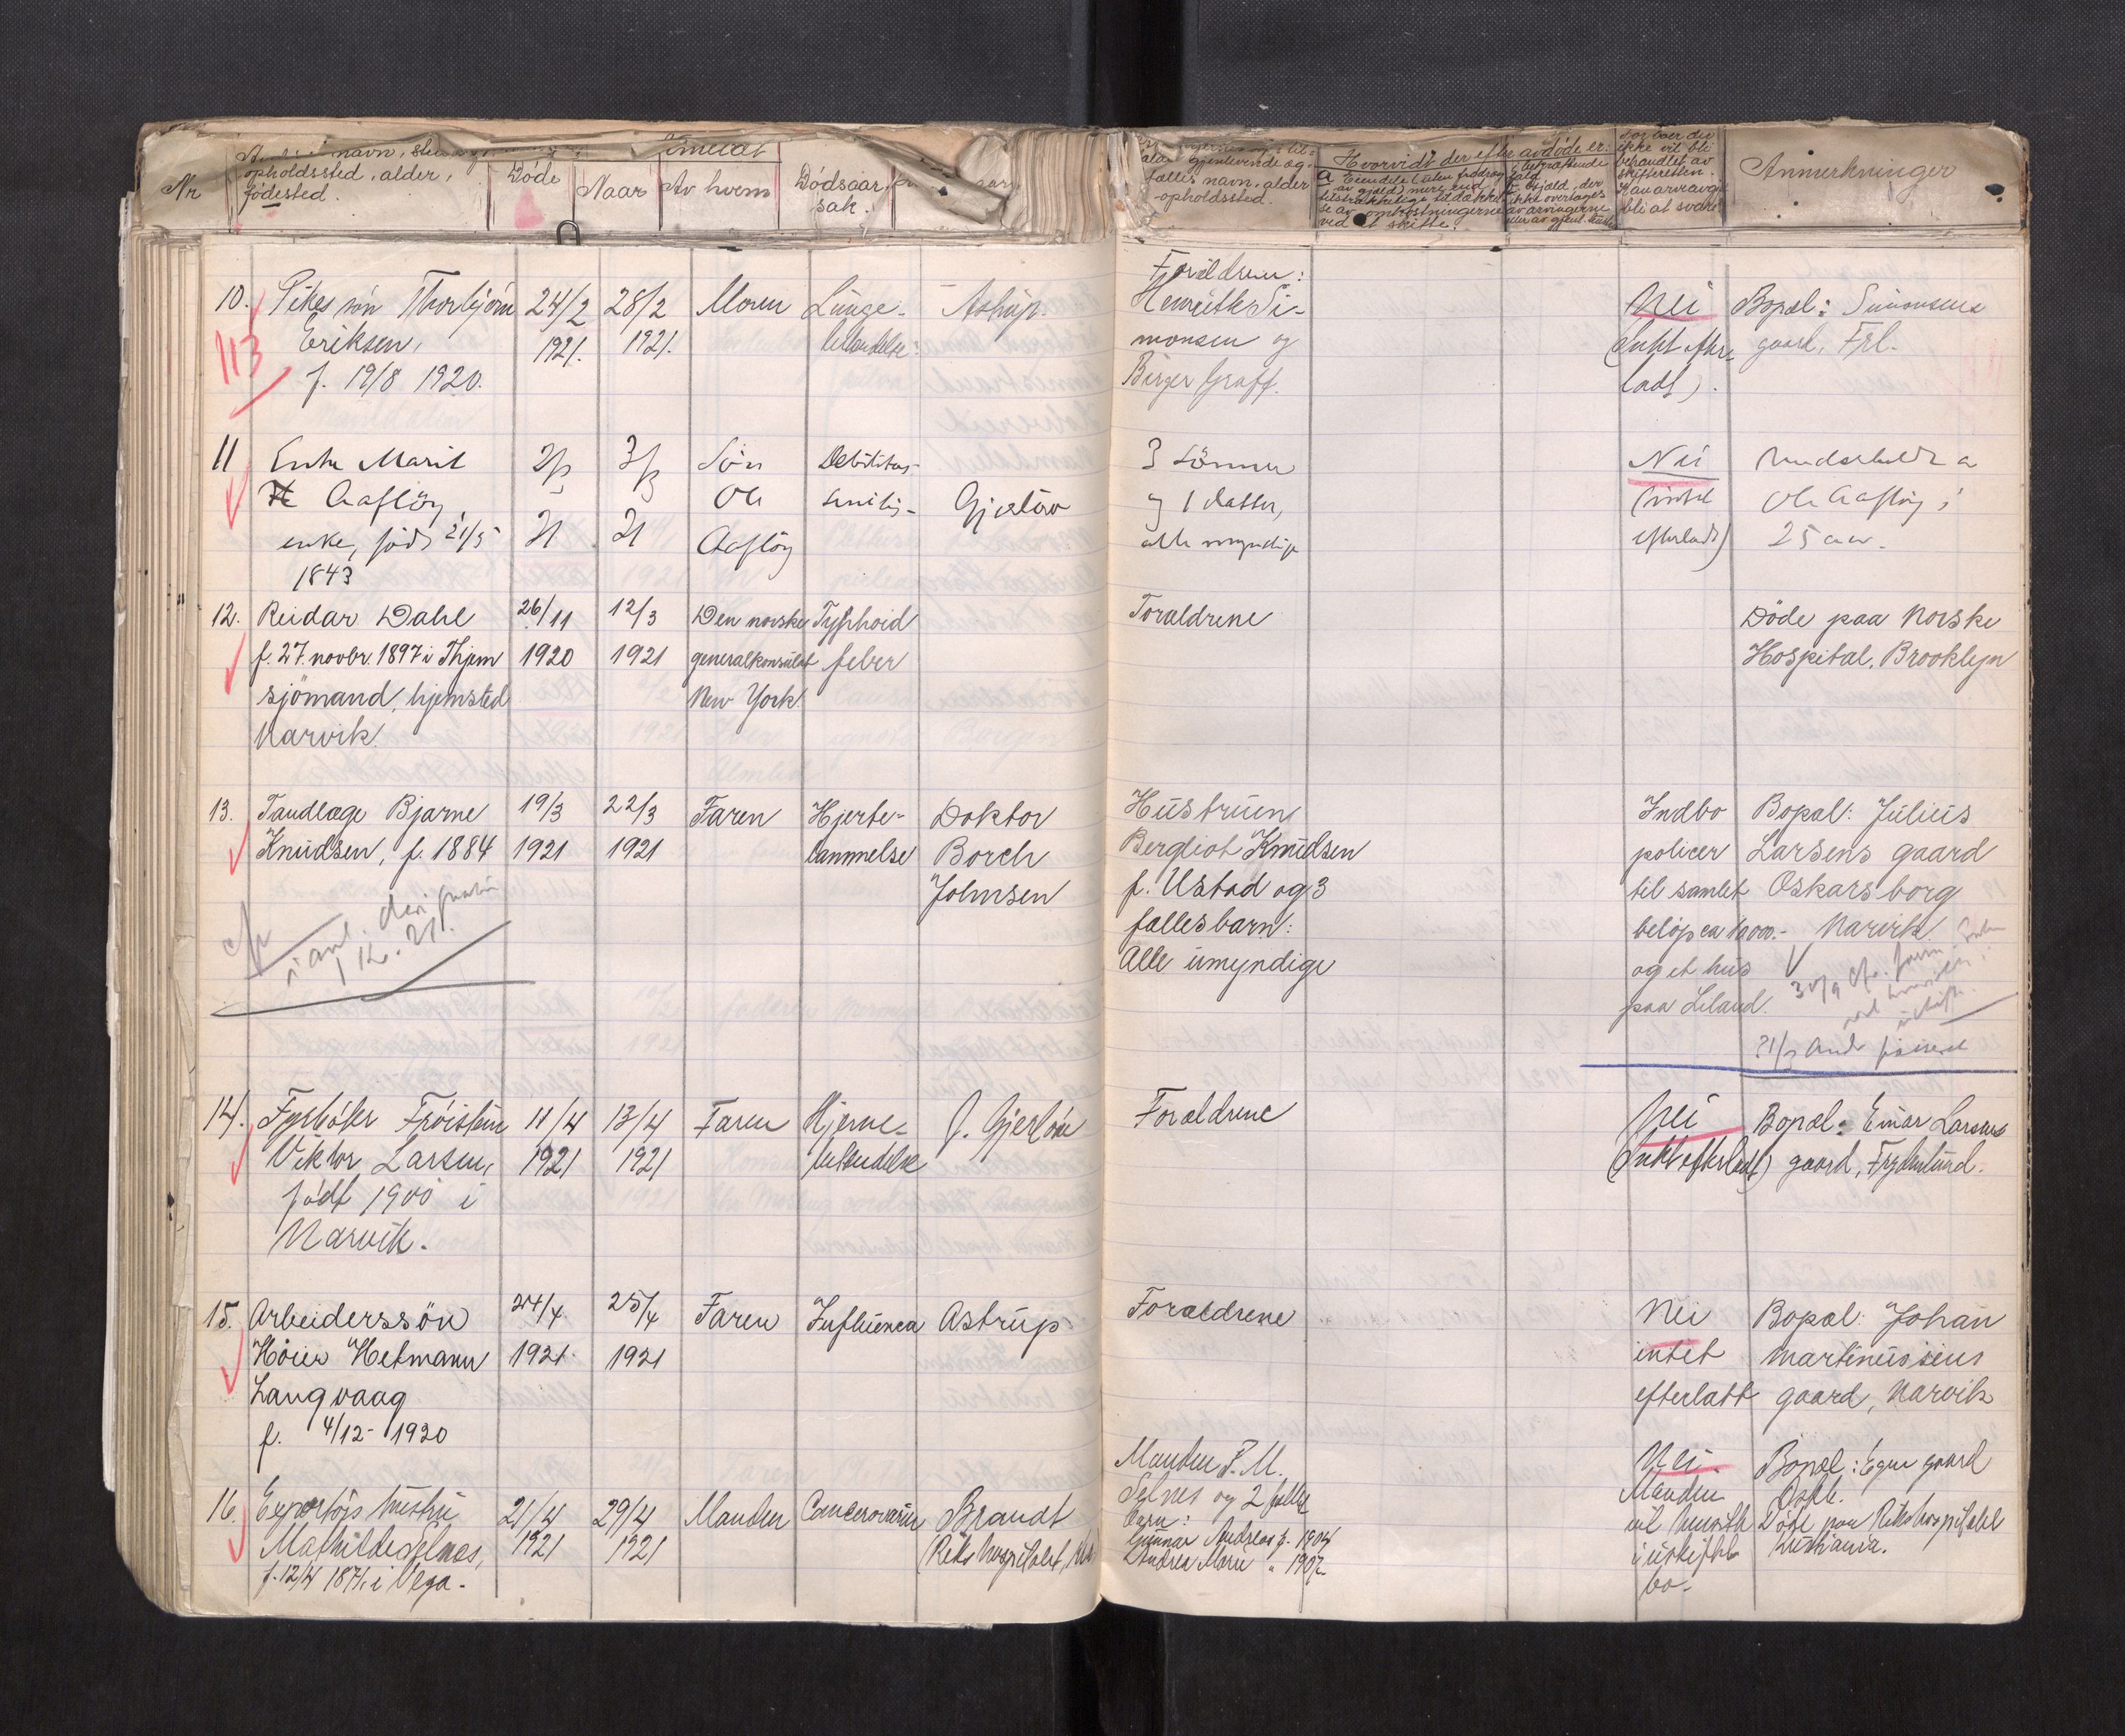 Nr
navn,
opholdssted, alder,
fødested.
Døde
Anmeldt
Naar
Av hvem
Dødsaar-
sak.
gjenlevende æg-
tefælles navn, alder
opholdssted.
Hvorvidt der efter avdøde er:
ikke vil bli
behandlet av
skifteretten.
bli at svare
Anmerkninger
10.
Pikes søn Thorbjørn
Eriksen,
f. 19/8 1920.
113
24/2
1921.
28/2
1921.
Moren
Lunge-
betændelse.
Astrup.
Forældrene:
Henriette Si-
monsen og
Birger Graff.
Nei
(Intet efter-
ladt).
Bopæl: Simonsens
gaard, Frl.
11
Enke Marit
Aafløy
enke, født 21/5
1843
2/3
21
3/3
21
Søn
Ole
Aafløy
Debilitas
senilis
Gjerløw
3 Sønner
og 1 datter,
alle myndige
Nei
(intet
efterladt)
Ole Aafløy i
25 aar.
12.
Reidar Dahl
f. 27. novbr. 1897 i Thjem
sjømand, hjemsted
Narvik.
26/11
1920
12/3
1921
Den norske
generalkonsulat
New York.
Typhoid
feber
Forældrene
Døde paa Norske
Hospital, Brooklyn
13.
Tandlæge Bjarne
Knudsen, f. 1884
19/3
1921
22/3
1921
Faren
Hjerte-
lammelse
Doktor
Borch
Johnsen
Hustruen
Bergliot Knudsen
f. Ustad og 3
fællesbarn:
Alle umyndige
Indbo
policer
til samlet
beløp ca 10000.-
og et hus
paa Leland.
Bopæl: Julius
Larsens gaard
Oskarsborg
Narvik
14.
Fyrbøter Frøistein
Viktor Larsen,
født 1900 i
Narvik.
11/4
1921
13/4
1921
Faren
Hjerne-
betændelse
J. Gjerløw
Forældrene
Nei
(Intet efterladt)
Bopæl: Einar Larsens
gaard, Frydenlund.
15.
Arbeiderssøn
Høier Hetmann
Langvaag
f. 4/12- 1920
24/4
1921.
25/4
1921
Faren
Influenca
Astrup
Forældrene
Nei
intet
efterlatt
Bopæl: Johan
Martinussens
gaard, Narvik
16.
Exportørs hustru
Mathilde Selnes,
f. 12/4 1871. i Vega.
21/4
1921
29/4
1921
Manden
Cancer ovarium
Brandt
(Rikshospitalet,
Manden P. M.
Selnes og 2 fælles
barn:
Gunnar Andreas f. 1904
Andrea Marie " 1907
Nei.
Manden
vil hensitte
i uskiftet
bo.
Bopæl: Egen gaard
Døde paa Rikshospitalet
Kristiania.